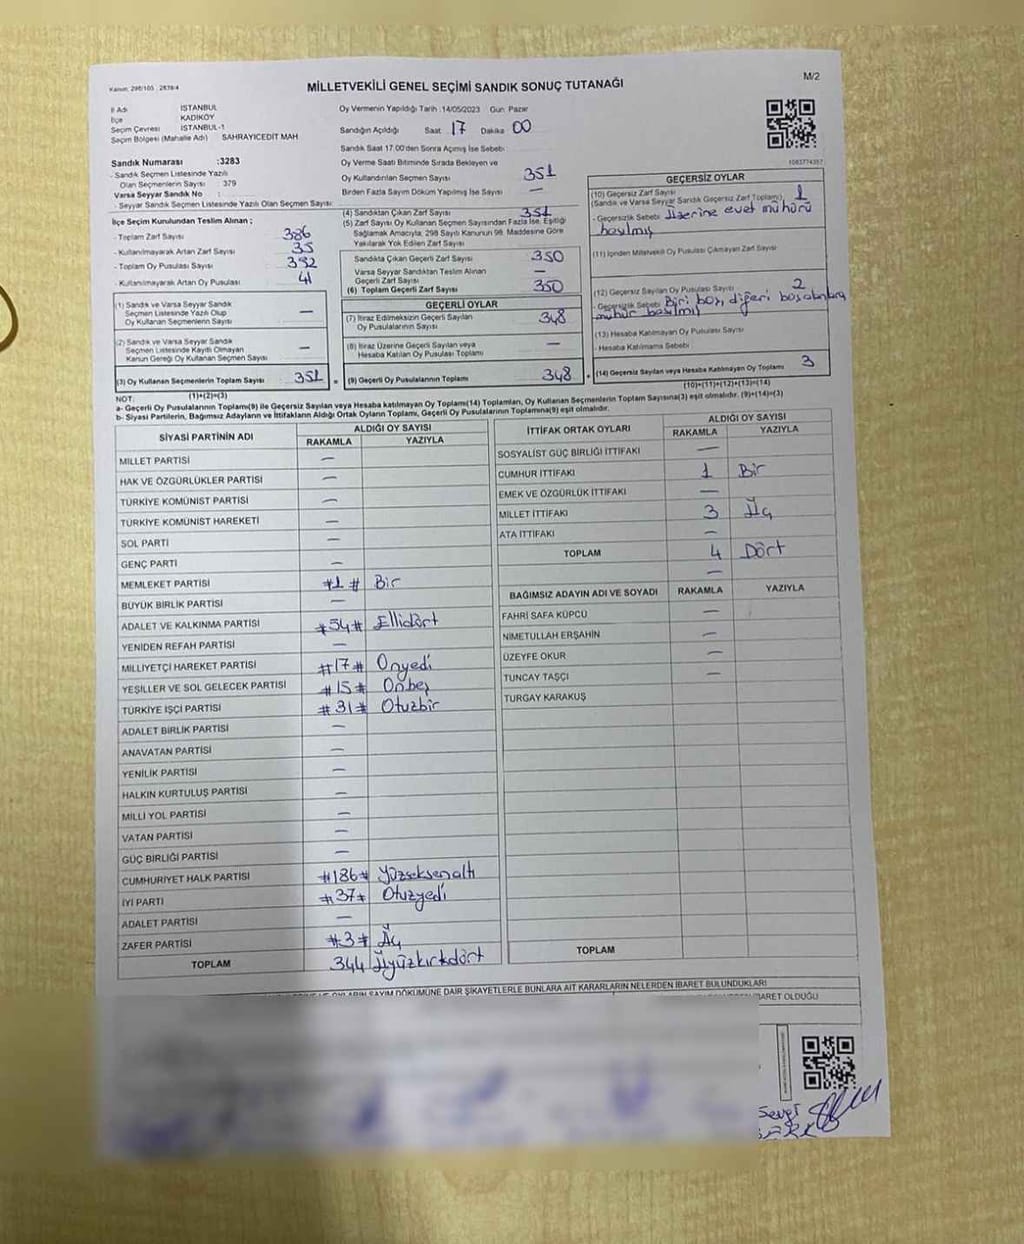 Kanun: 298/105 , 2839/4
MİLLETVEKİLİ GENEL SEÇİMİ SANDIK SONUÇ TUTANAĞI
M/2
İl Adı İSTANBUL
İlçe KADIKÖY
Seçim Çevresi İSTANBUL-1
Seçim Bölgesi (Mahalle Adı) SAHRAYICEDİT MAH
Sandık Numarası :3283
- Sandık Seçmen Listesinde Yazılı
Olan Seçmenlerin Sayısı : 379
Varsa Seyyar Sandık No :
- Seyyar Sandık Seçmen Listesinde Yazılı Olan Seçmen Sayısı:
Oy Vermenin Yapıldığı Tarih :14/05/2023 Gün: Pazar
Sandığın Açıldığı Saat 17 Dakika 00
Sandık Saat 17.00'den Sonra Açılmış İse Sebebi:
Oy Verme Saati Bitiminde Sırada Bekleyen ve
Oy Kullandırılan Seçmen Sayısı 351
Birden Fazla Sayım Döküm Yapılmış İse Sayısı —
1083774357
İlçe Seçim Kurulundan Teslim Alınan ;
- Toplam Zarf Sayısı 386
- Kullanılmayarak Artan Zarf Sayısı 35
- Toplam Oy Pusulası Sayısı 392
- Kullanılmayarak Artan Oy Pusulası 41
(1) Sandık ve Varsa Seyyar Sandık
Seçmen Listesinde Yazılı Olup
Oy Kullanan Seçmenlerin Sayısı —
(2) Sandık ve Varsa Seyyar Sandık
Seçmen Listesinde Kayıtlı Olmayan
Kanun Gereği Oy Kullanan Seçmen Sayısı —
(3) Oy Kullanan Seçmenlerin Toplam Sayısı 351 =
(1)+(2)=(3)
(4) Sandıktan Çıkan Zarf Sayısı 351
(5) Zarf Sayısı Oy Kullanan Seçmen Sayısından Fazla İse, Eşitliği
Sağlamak Amacıyla, 298 Sayılı Kanunun 98. Maddesine Göre
Yakılarak Yok Edilen Zarf Sayısı
Sandıkta Çıkan Geçerli Zarf Sayısı 350
Varsa Seyyar Sandıktan Teslim Alınan
Geçerli Zarf Sayısı —
(6) Toplam Geçerli Zarf Sayısı 350
GEÇERLİ OYLAR
(7) İtiraz Edilmeksizin Geçerli Sayılan
Oy Pusulalarının Sayısı 348
(8) İtiraz Üzerine Geçerli Sayılan veya
Hesaba Katılan Oy Pusulası Toplamı —
(9) Geçerli Oy Pusulalarının Toplamı 348 +
GEÇERSİZ OYLAR
(10) Geçersiz Zarf Sayısı 1
(Sandık ve Varsa Seyyar Sandık Geçersiz Zarf Toplamı)
- Geçersizlik Sebebi Üzerine evet mühürü
basılmış
(11) İçinden Milletvekili Oy Pusulası Çıkmayan Zarf Sayısı
(12) Geçersiz Sayılan Oy Pusulası Sayısı 2
- Geçersizlik Sebebi Biri boş, diğeri
mühür basılmış
(13) Hesaba Katılmayan Oy Pusulası Sayısı
- Hesaba Katılmama Sebebi
(14) Geçersiz Sayılan veya Hesaba Katılmayan Oy Toplamı 3
(10)+(11)+(12)+(13)=(14)
NOT:
a- Geçerli Oy Pusulalarının Toplamı(9) ile Geçersiz Sayılan veya Hesaba katılmayan Oy Toplamı(14) Toplamları, Oy Kullanan Seçmenlerin Toplam Sayısına(3) eşit olmalıdır. (9)+(14)=(3)
b- Siyasi Partilerin, Bağımsız Adayların ve İttifakların Aldığı Ortak Oyların Toplamı, Geçerli Oy Pusulalarının Toplamına(9) eşit olmalıdır.
SİYASİ PARTİNİN ADI ALDIĞI OY SAYISI
RAKAMLA YAZIYLA
MİLLET PARTİSİ —
HAK VE ÖZGÜRLÜKLER PARTİSİ —
TÜRKİYE KOMÜNİST PARTİSİ —
TÜRKİYE KOMÜNİST HAREKETİ —
SOL PARTİ —
GENÇ PARTİ —
MEMLEKET PARTİSİ #1# Bir
BÜYÜK BİRLİK PARTİSİ —
ADALET VE KALKINMA PARTİSİ #54# Ellidört
YENİDEN REFAH PARTİSİ —
MİLLİYETÇİ HAREKET PARTİSİ #17# Onyedi
YEŞİLLER VE SOL GELECEK PARTİSİ #15# Onbeş
TÜRKİYE İŞÇİ PARTİSİ #31# Otuzbir
ADALET BİRLİK PARTİSİ —
ANAVATAN PARTİSİ —
YENİLİK PARTİSİ —
HALKIN KURTULUŞ PARTİSİ —
MİLLİ YOL PARTİSİ —
VATAN PARTİSİ —
GÜÇ BİRLİĞİ PARTİSİ —
CUMHURİYET HALK PARTİSİ #186# Yüzseksenaltı
İYİ PARTİ #37# Otuzyedi
ADALET PARTİSİ —
ZAFER PARTİSİ #3# Üç
TOPLAM 344 Üçyüzkırkdört
İTTİFAK ORTAK OYLARI ALDIĞI OY SAYISI
RAKAMLA YAZIYLA
SOSYALİST GÜÇ BİRLİĞİ İTTİFAKI —
CUMHUR İTTİFAKI 1 Bir
EMEK VE ÖZGÜRLÜK İTTİFAKI —
MİLLET İTTİFAKI 3 Üç
ATA İTTİFAKI —
TOPLAM 4 Dört
—
BAĞIMSIZ ADAYIN ADI VE SOYADI RAKAMLA YAZIYLA
FAHRİ SAFA KÜPCÜ —
NİMETULLAH ERŞAHİN —
ÜZEYFE OKUR —
TUNCAY TAŞÇI —
TURGAY KARAKUŞ
TOPLAM
OYLARIN SAYIM DÖKÜMÜNE DAİR ŞİKAYETLERLE BUNLARA AİT KARARLARIN NELERDEN İBARET BULUNDUKLARI
İBARET OLDUĞU
Sevgi